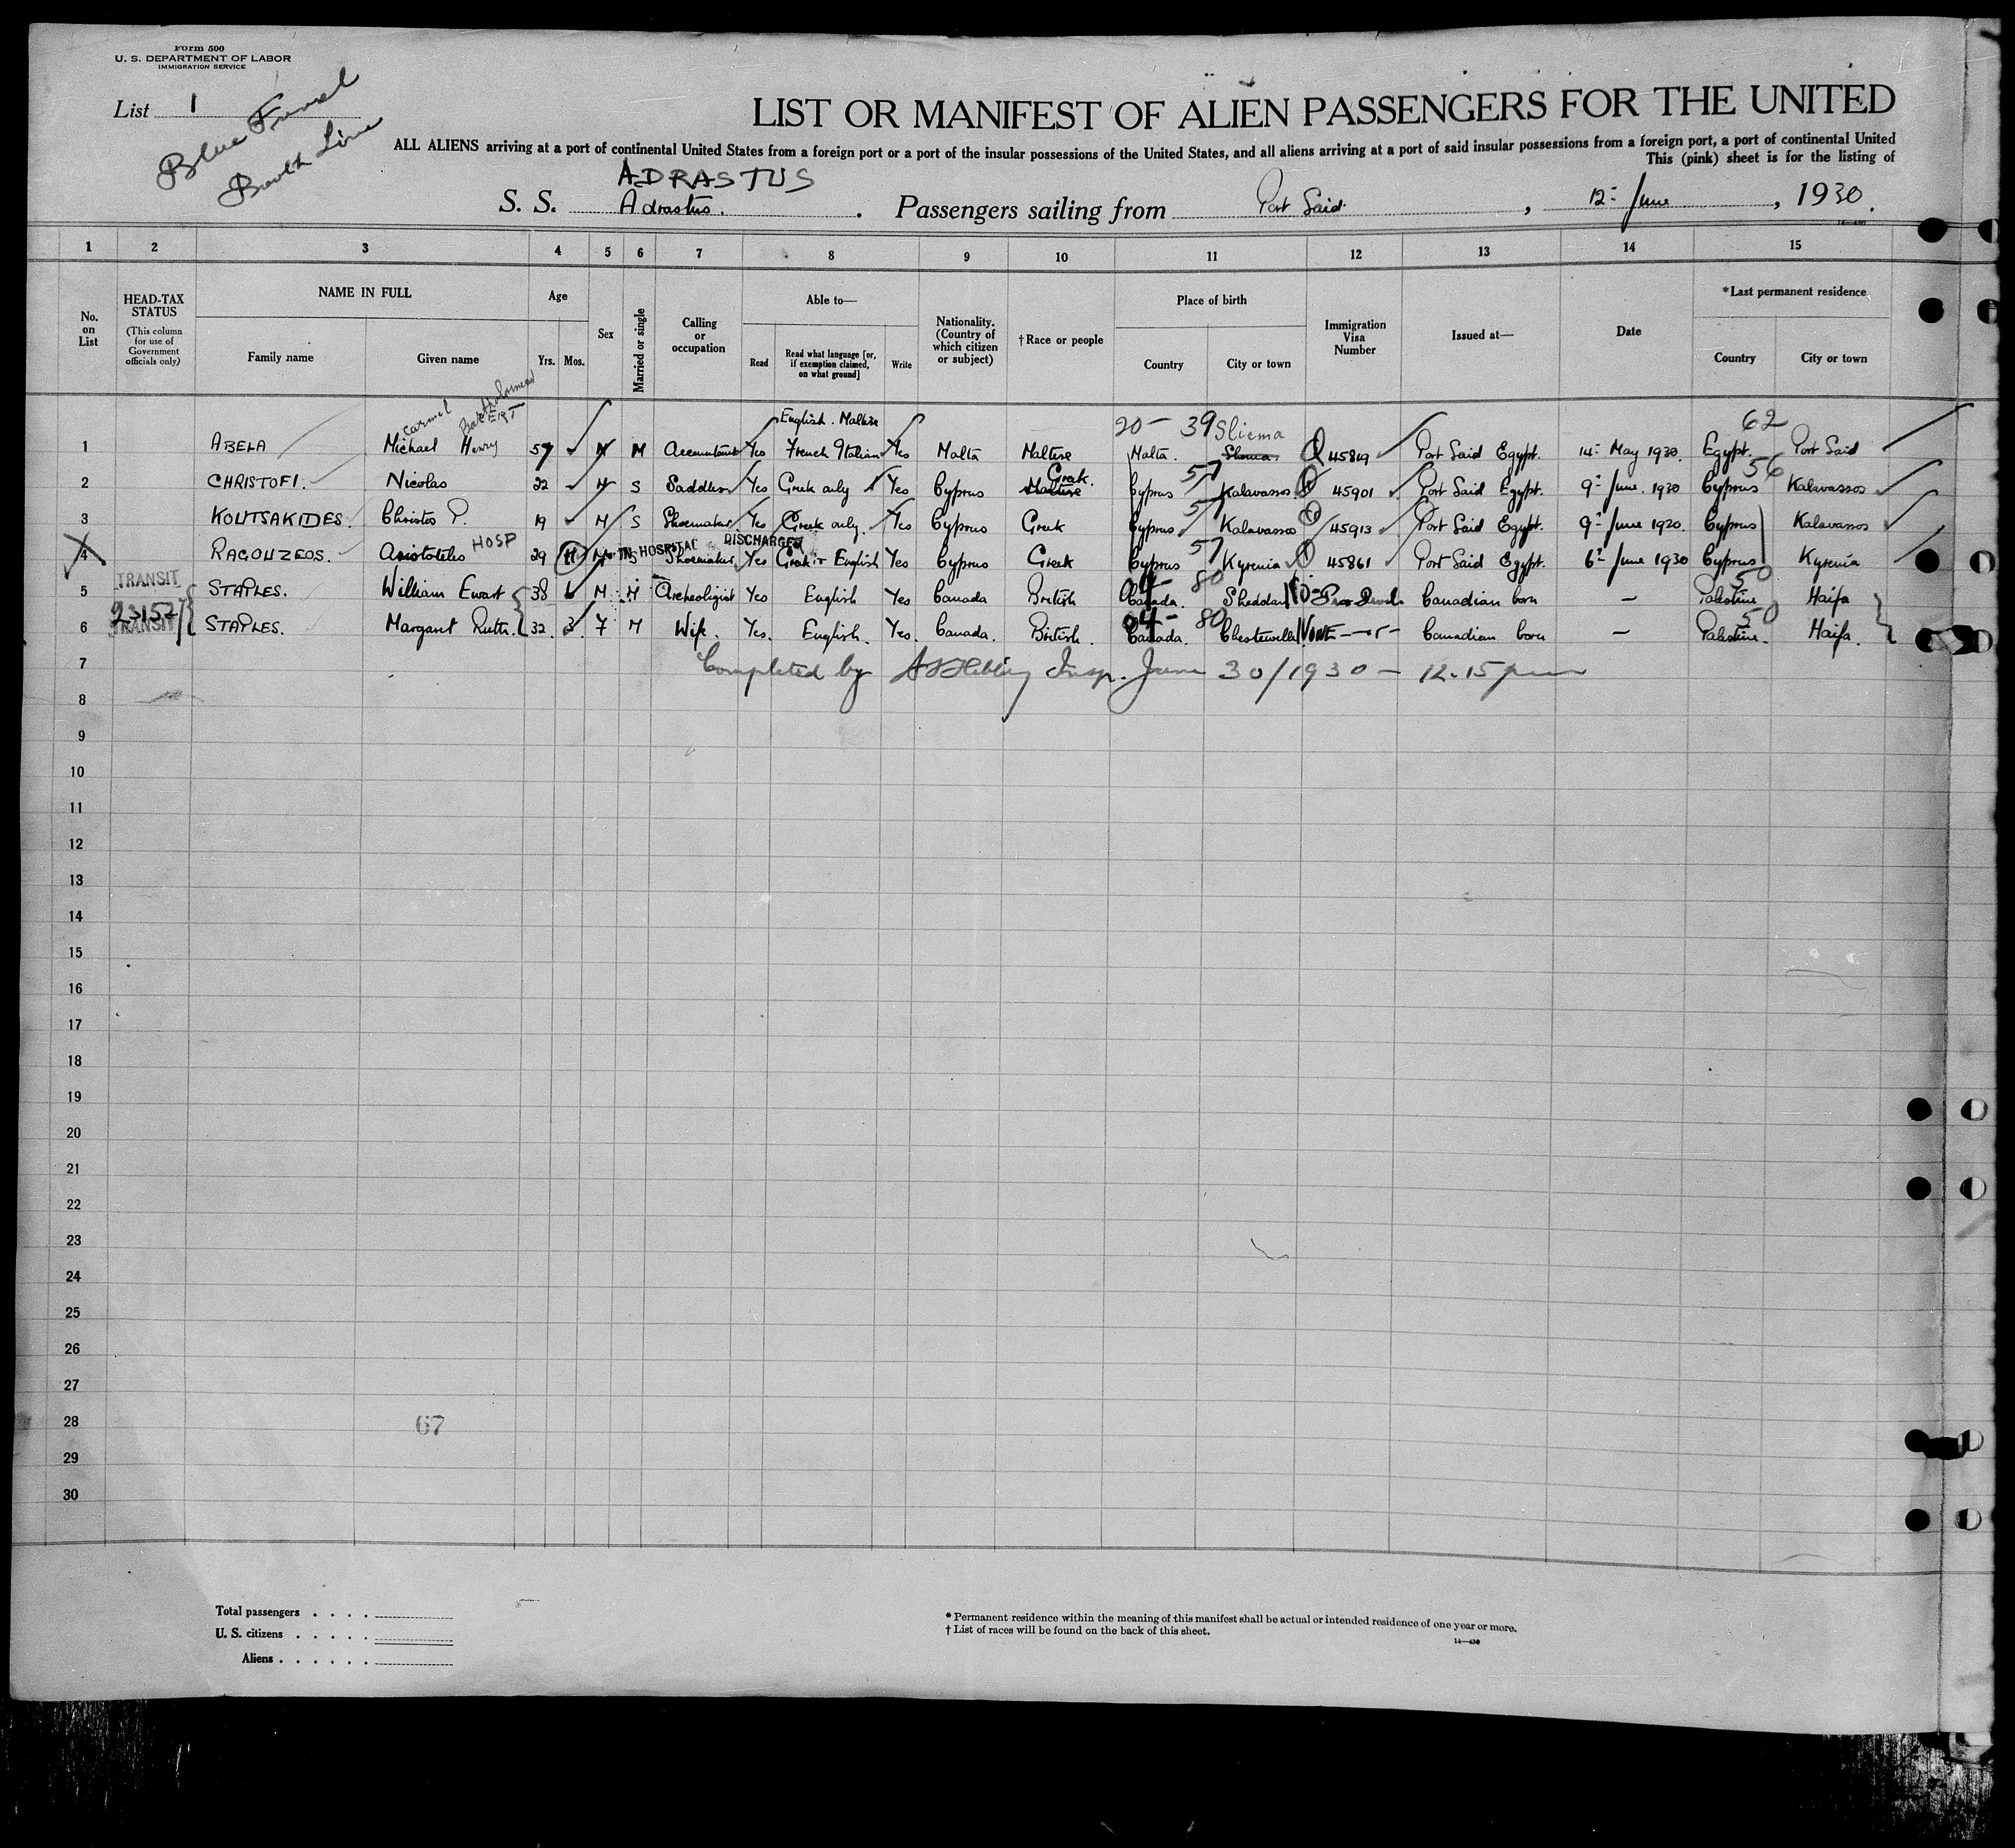 Form 500
U. S. DEPARTMENT OF LABOR
IMMIGRATION SERVICE
List 1
Blue Funnel
Booth Line
LIST OR MANIFEST OF ALIEN PASSENGERS FOR THE UNITED
ALL ALIENS arriving at a port of continental United States from a foreign port or a port of the insular possessions of the United States, and all aliens arriving at a port of said insular possessions from a foreign port, a port of continental United
This (pink) sheet is for the listing of
ADRASTUS
S. S. Adrastus. Passengers sailing from Port Said, 12- June, 1930.
1 2 3 4 5 6 7 8 9 10 11 12 13 14 15
No. on List
HEAD-TAX STATUS (This column for use of Government officials only)
NAME IN FULL
Family name Given name
Age
Yrs. Mos.
Sex
Married or single
Calling or occupation
Able to—
Read Read what language [or, if exemption claimed, on what ground] Write
Nationality. (Country of which citizen or subject)
†Race or people
Place of birth
Country City or town
Immigration Visa Number
Issued at—
Date
*Last permanent residence
Country City or town
Carmel Bartholomew English. Maltese 20- 39 Sliema 62
1 ABELA Michael Henry 57 M M Accountant Yes French Italian Yes Malta Maltese Malta. 45819 Port Said Egypt. 14- May 1930. Egypt. Port Said
Greek. 57 56
2 CHRISTOFI. Nicolas 22 M S Saddler Yes Greek only Yes Cyprus Maltese Cyprus Kalavassos. 45901 Port Said Egypt. 9- June. 1930 Cyprus Kalavassos
57
3 KOUTSAKIDES. Christos P. 19 M S Shoemaker. Yes Greek only. Yes Cyprus Greek Cyprus Kalavassos 45913 Port Said Egypt. 9- June 1930. Cyprus Kalavassos
HOSP IN HOSPITAL DISCHARGED 57
4 RAGOUZEOS. Aristoteles 29 11 M S Shoemaker Yes Greek & English Yes Cyprus Greek Cyprus Kyrenia 45861 Port Said Egypt. 6- June 1930 Cyprus Kyrenia
TRANSIT 80 50
5 STAPLES. William Ewart 38 6 M. M Archeologist Yes English Yes Canada British Canada. Sheddon Canadian born — Palestine Haifa
23157
TRANSIT 04- 80 50
6 STAPLES. Margaret Ruth. 32. 3. F M Wife. Yes. English. Yes. Canada. British. Canada. NONE Canadian born — Palestine. Haifa.
7 Completed by Insp. June 30/1930 - 12.15 pm
8
9
10
11
12
13
14
15
16
17
18
19
20
21
22
23
24
25
26
27
28 67
29
30
Total passengers . . . .
U. S. citizens . . . . .
Aliens . . . . . .
* Permanent residence within the meaning of this manifest shall be actual or intended residence of one year or more.
† List of races will be found on the back of this sheet.
14—430